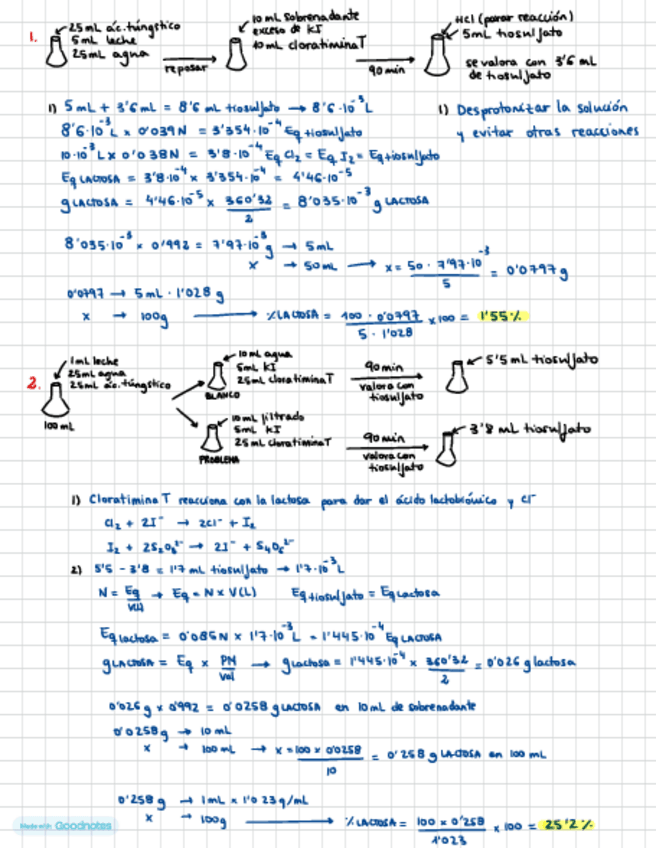 1. 25 mL ác. túngstico
5 mL leche
25 mL agua
reposar
10 mL sobrenadante
exceso de KI
10 mL cloratimina T
90 min
HCl (parar reacción)
5 mL tiosulfato
se valora con 3'6 mL
de tiosulfato
1) 5 mL + 3'6 mL = 8'6 mL tiosulfato → 8'6·10⁻³ L
8'6·10⁻³ L × 0'039 N = 3'354·10⁻⁴ Eq tiosulfato
10·10⁻³ L × 0'038 N = 3'8·10⁻⁴ Eq Cl₂ = Eq I₂ = Eq tiosulfato
Eq LACTOSA = 3'8·10⁻⁴ × 3'354·10⁻⁴ = 4'46·10⁻⁵
g LACTOSA = 4'46·10⁻⁵ × 360'32 / 2 = 8'035·10⁻³ g LACTOSA
1) Desprotonizar la solución
y evitar otras reacciones
8'035·10⁻³ × 0'992 = 7'97·10⁻³ g → 5 mL
x → 50 mL → x = 50 · 7'97·10⁻³ / 5 = 0'0797 g
0'0797 → 5 mL · 1'028 g
x → 100 g → % LACTOSA = 100 · 0'0797 / 5 · 1'028 × 100 = 1'55 %
2. 1 mL leche
25 mL agua
25 mL ác. túngstico
100 mL
10 mL agua
5 mL KI
25 mL cloratimina T
BLANCO
90 min
valora con
tiosulfato
5'5 mL tiosulfato
10 mL filtrado
5 mL KI
25 mL cloratimina T
PROBLEMA
90 min
valora con
tiosulfato
3'8 mL tiosulfato
1) Cloratimina T reacciona con la lactosa para dar el ácido lactobiónico y Cl⁻
Cl₂ + 2I⁻ → 2Cl⁻ + I₂
I₂ + 2S₂O₃²⁻ → 2I⁻ + S₄O₆²⁻
2) 5'5 - 3'8 = 1'7 mL tiosulfato → 1'7·10⁻³ L
N = Eq / V(L) → Eq = N × V(L) Eq tiosulfato = Eq Lactosa
Eq lactosa = 0'085 N × 1'7·10⁻³ L = 1'445·10⁻⁴ Eq LACTOSA
g LACTOSA = Eq × PM / val → g lactosa = 1'445·10⁻⁴ × 360'32 / 2 = 0'026 g lactosa
0'026 g × 0'992 = 0'0258 g LACTOSA en 10 mL de sobrenadante
0'0258 g → 10 mL
x → 100 mL → x = 100 × 0'0258 / 10 = 0'258 g LACTOSA en 100 mL
0'258 g → 1 mL × 1'023 g/mL
x → 100 g → % LACTOSA = 100 × 0'258 / 1'023 × 100 = 25'2 %
Made with Goodnotes